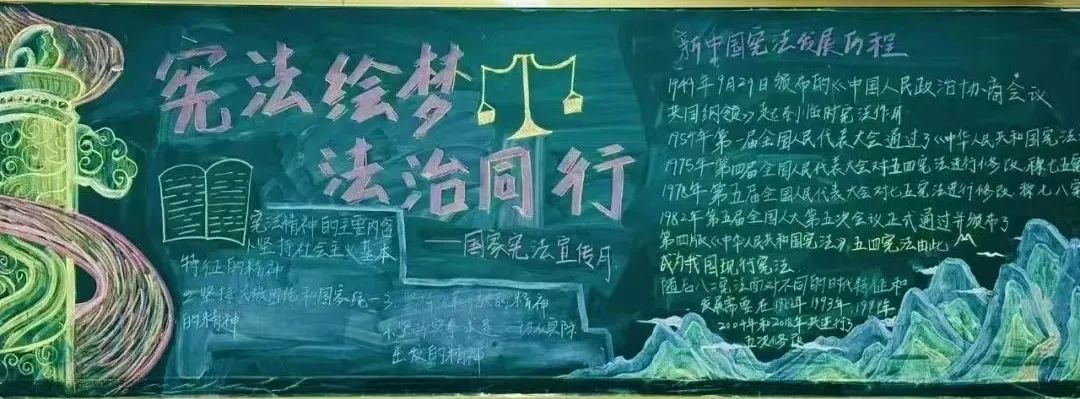 宪法绘梦
法治同行
——国家宪法宣传月
宪法精神的主要内容
1.坚持社会主义基本
特征的精神
2.坚持民族团结和国家统一
的精神
3
精神
一切从实际
出发的精神
新中国宪法发展历程
1949年9月29日颁布的《中国人民政治协商会议
共同纲领》起到临时宪法作用
1954年第一届全国人民代表大会通过了《中华人民共和国宪法
1975年第四届全国人民代表大会对五四宪法进行修改,称七五宪
1978年第五届全国人民代表大会对七五宪法进行修改,称七八宪
1982年第五届全国人大第五次会议正式通过并颁布了
第四版《中华人民共和国宪法》,五四宪法由此
成为我国现行宪法
随后八二宪法面对不同的时代特征和
发展需要在1988年1993年、1999年、
2004年和2018年共进行了
五次修改